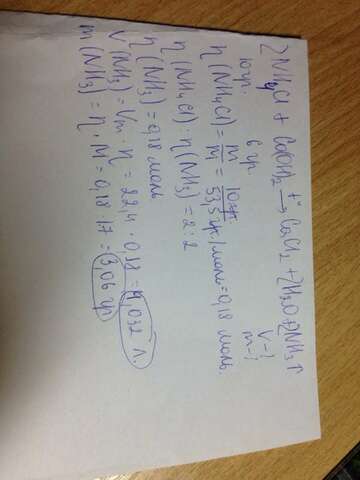 2NH4Cl + Ca(OH)2 t° → CaCl2 + 2H2O + 2NH3↑
10гр. 6гр V-?
m-?
η(NH4Cl) = m/M = 10гр./53,5гр/моль = 0,18 моль.
η(NH4Cl) : η(NH3) = 2:2
η(NH3) = 0,18 моль
V(NH3) = Vm · η = 22,4 · 0,18 = 4,032 л.
m(NH3) = η · M = 0,18 · 17 = 3,06 гр